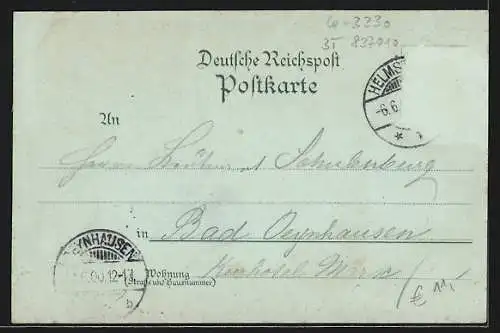 w-3230
3T 837010
Deutsche Reichspost
Postkarte
HELMS
-6.6
An
Herrn Schulenburg
in Bad Oeynhausen
EYNHAUSEN
.00.12-1
b
Wohnung
(Straße und Hausnummer)
€ 11,